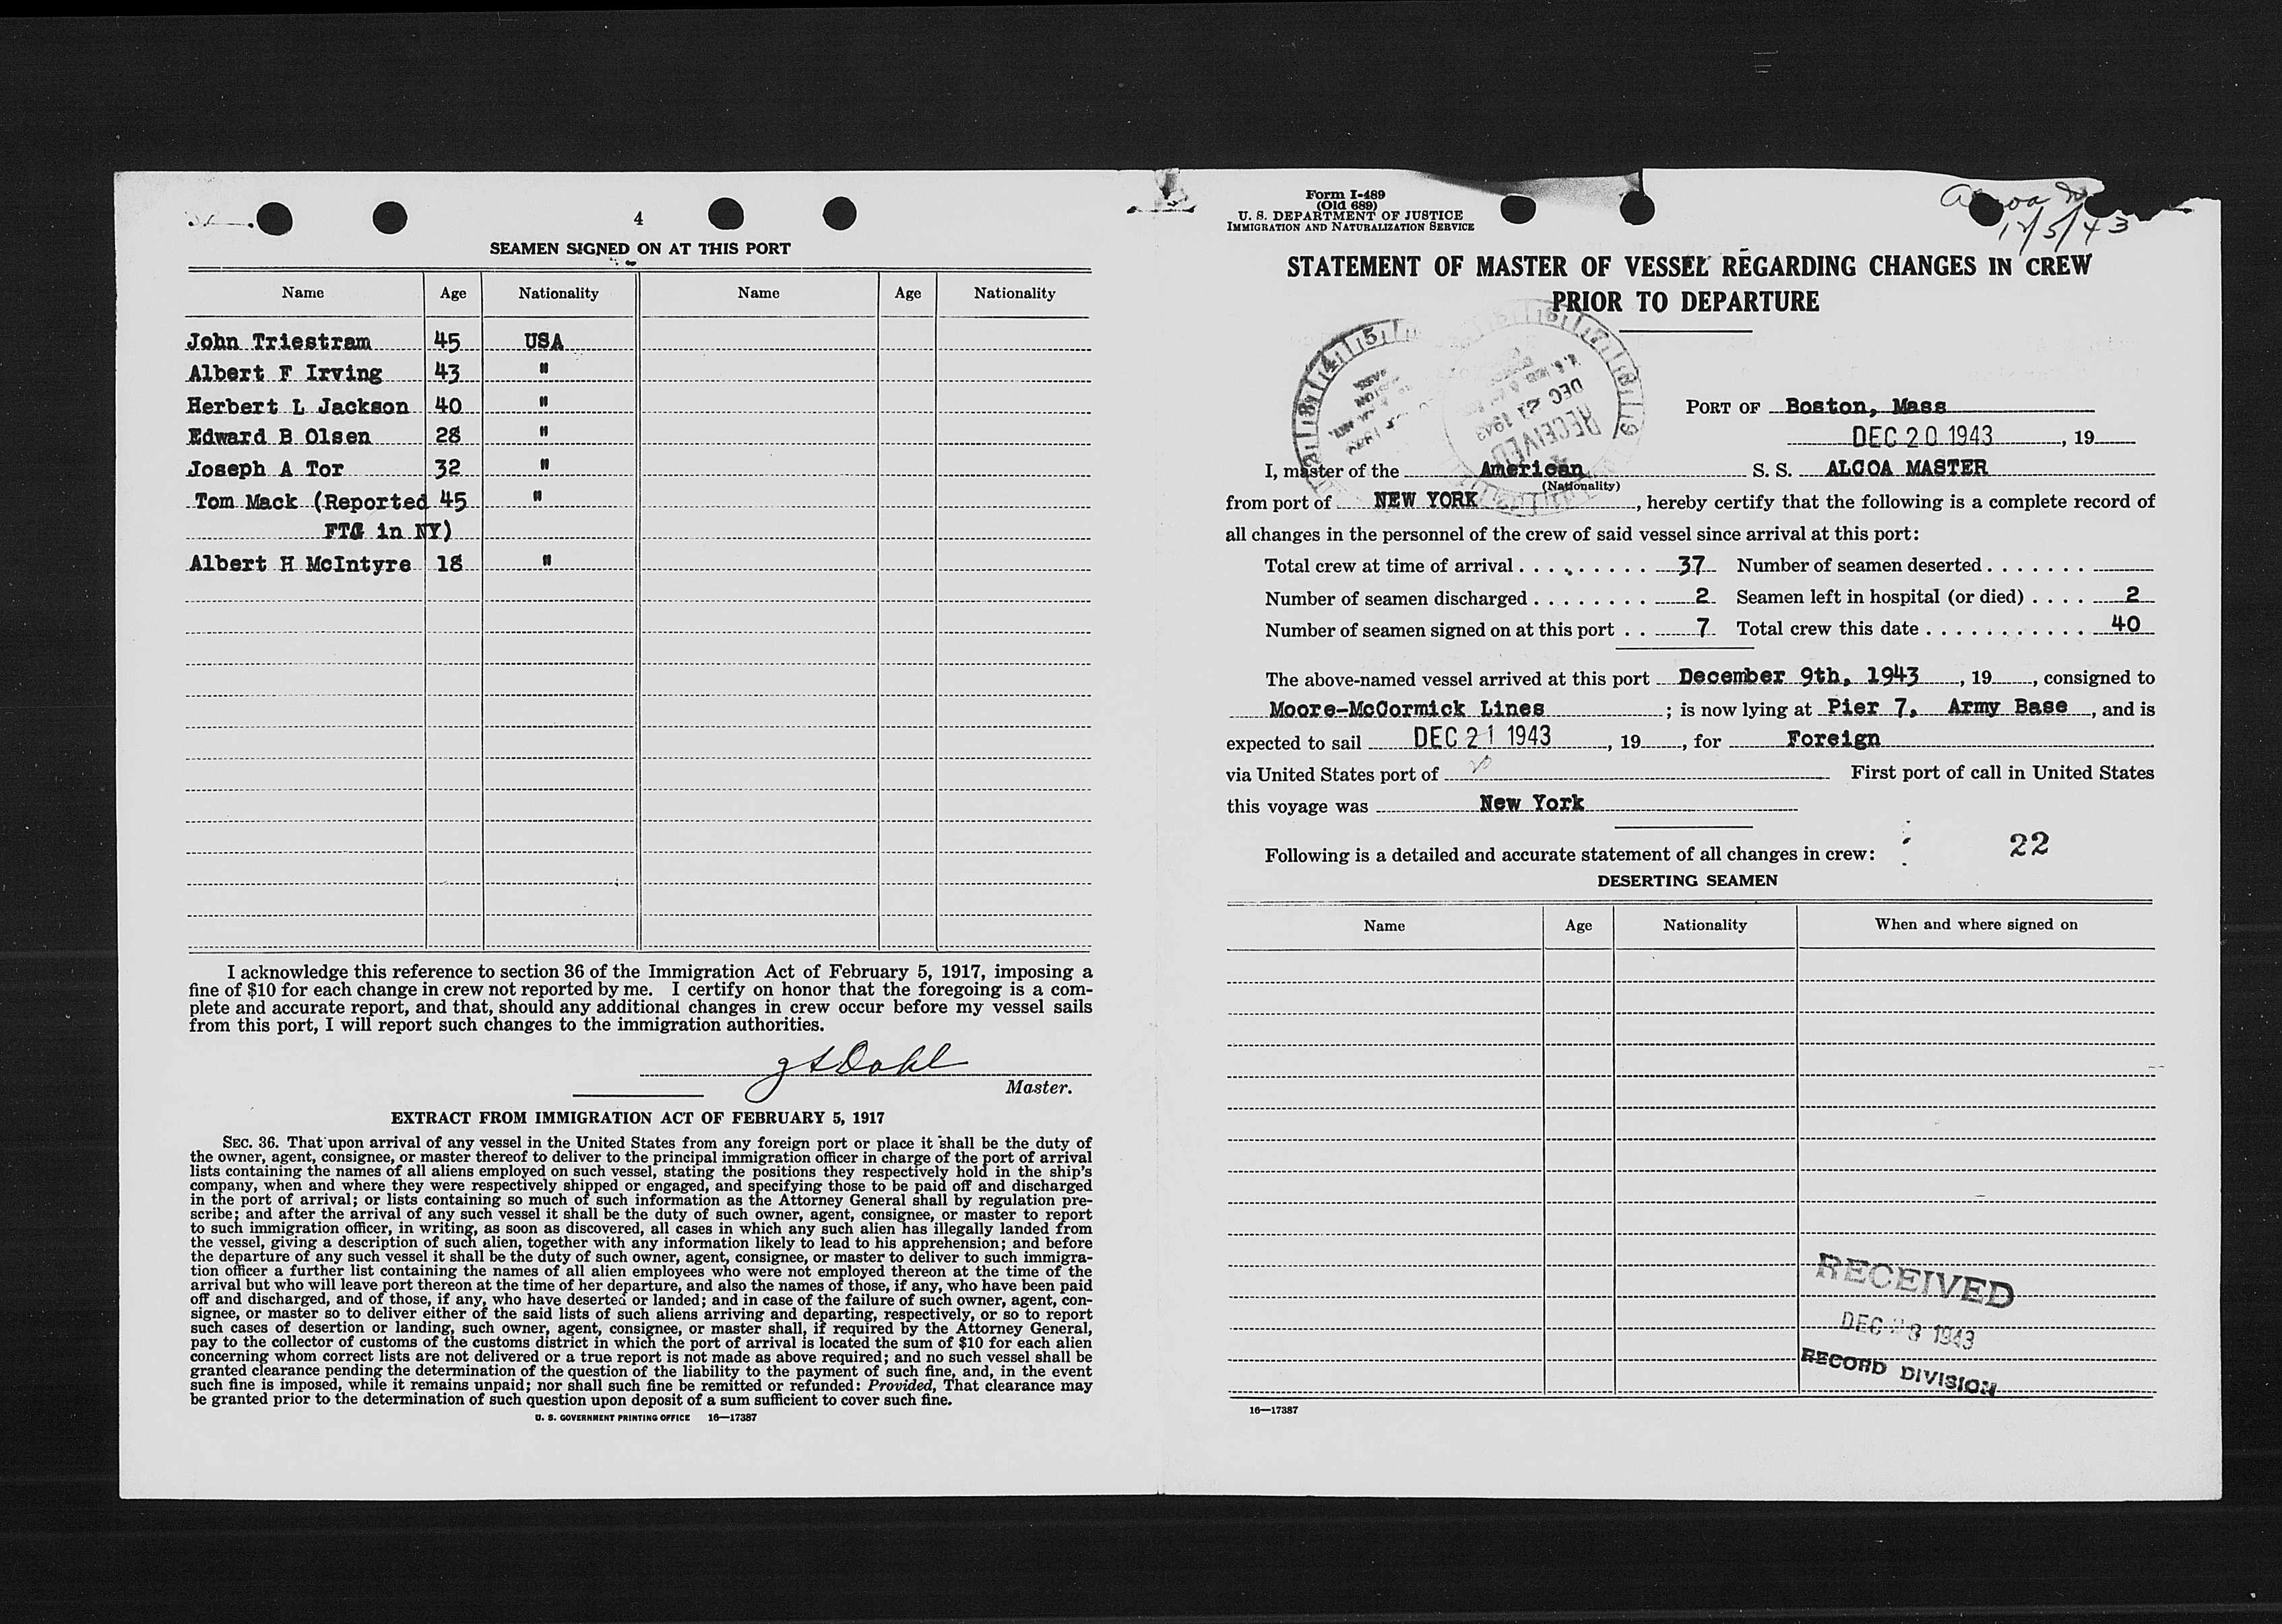 4
SEAMEN SIGNED ON AT THIS PORT
Name Age Nationality Name Age Nationality
John Triestram 45 USA
Albert F Irving 43 "
Herbert L Jackson 40 "
Edward B Olsen 28 "
Joseph A Tor 32 "
Tom Mack (Reported 45 "
FTG in NY)
Albert H McIntyre 18 "
I acknowledge this reference to section 36 of the Immigration Act of February 5, 1917, imposing a
fine of $10 for each change in crew not reported by me. I certify on honor that the foregoing is a com-
plete and accurate report, and that, should any additional changes in crew occur before my vessel sails
from this port, I will report such changes to the immigration authorities.
Dahl
Master.
EXTRACT FROM IMMIGRATION ACT OF FEBRUARY 5, 1917
SEC. 36. That upon arrival of any vessel in the United States from any foreign port or place it shall be the duty of
the owner, agent, consignee, or master thereof to deliver to the principal immigration officer in charge of the port of arrival
lists containing the names of all aliens employed on such vessel, stating the positions they respectively hold in the ship's
company, when and where they were respectively shipped or engaged, and specifying those to be paid off and discharged
in the port of arrival; or lists containing so much of such information as the Attorney General shall by regulation pre-
scribe; and after the arrival of any such vessel it shall be the duty of such owner, agent, consignee, or master to report
to such immigration officer, in writing, as soon as discovered, all cases in which any such alien has illegally landed from
the vessel, giving a description of such alien, together with any information likely to lead to his apprehension; and before
the departure of any such vessel it shall be the duty of such owner, agent, consignee, or master to deliver to such immigra-
tion officer a further list containing the names of all alien employees who were not employed thereon at the time of the
arrival but who will leave port thereon at the time of her departure, and also the names of those, if any, who have been paid
off and discharged, and of those, if any, who have deserted or landed; and in case of the failure of such owner, agent, con-
signee, or master so to deliver either of the said lists of such aliens arriving and departing, respectively, or so to report
such cases of desertion or landing, such owner, agent, consignee, or master shall, if required by the Attorney General,
pay to the collector of customs of the customs district in which the port of arrival is located the sum of $10 for each alien
concerning whom correct lists are not delivered or a true report is not made as above required; and no such vessel shall be
granted clearance pending the determination of the question of the liability to the payment of such fine, and, in the event
such fine is imposed, while it remains unpaid; nor shall such fine be remitted or refunded: Provided, That clearance may
be granted prior to the determination of such question upon deposit of a sum sufficient to cover such fine.
U. S. GOVERNMENT PRINTING OFFICE 16—17387
Form I-489
(Old 689)
U. S. DEPARTMENT OF JUSTICE
IMMIGRATION AND NATURALIZATION SERVICE
12/5/43
STATEMENT OF MASTER OF VESSEL REGARDING CHANGES IN CREW
PRIOR TO DEPARTURE
RECEIVED
DEC 21 1943
PORT OF Boston, Mass
DEC 20 1943, 19
I, master of the American S. S. ALCOA MASTER
(Nationality)
from port of NEW YORK, hereby certify that the following is a complete record of
all changes in the personnel of the crew of said vessel since arrival at this port:
Total crew at time of arrival . . . . . . . . . 37 Number of seamen deserted . . . . . . .
Number of seamen discharged . . . . . . . . 2 Seamen left in hospital (or died) . . . . 2
Number of seamen signed on at this port . . 7 Total crew this date . . . . . . . . . . . . 40
The above-named vessel arrived at this port December 9th, 1943, 19, consigned to
Moore-McCormick Lines; is now lying at Pier 7, Army Base, and is
expected to sail DEC 21 1943, 19, for Foreign
via United States port of First port of call in United States
this voyage was New York
Following is a detailed and accurate statement of all changes in crew: 22
DESERTING SEAMEN
Name Age Nationality When and where signed on
RECEIVED
DEC 1943
RECORD DIVISION
16—17387